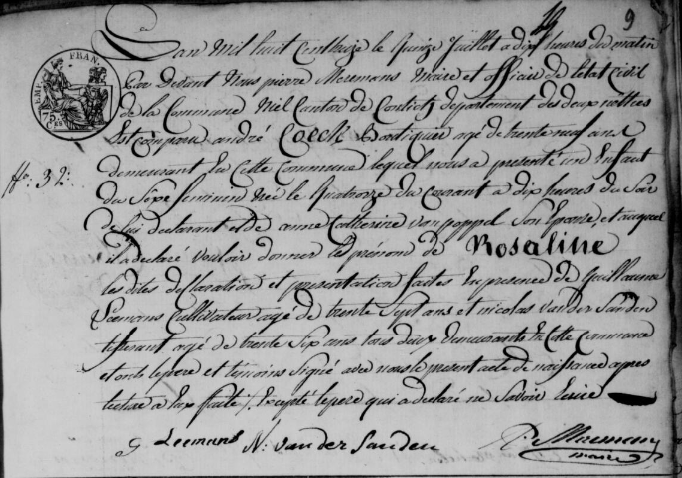 19 9
EMP. FRAN.
75 Ces
Lan Mil huit Cent treize le Quinze Juillet a dix heures du matin
Par Devant Nous pierre Meremans Maire et officier de letat Civil
de la Commune Nil Canton de Contich departement des deux nethes
Est Comparu andré Coeck Boutiquier agé de trente neuf ans
demeurant En Cette Commune lequel nous a presenté un Enfant
No. 32:
du Sexe feminin Née le Quatorze du Courant a dix heures du Soir
de lui declarant et de anne Catherine van poppel Son Epouse, et auquel
il a declaré vouloir donner les prénom de Rosaline
les dites declaration et presentation faites En presence de Guillaume
Leemans Cultivateur agé de trente Sept ans et nicolas van der Sanden
tisserant agé de trente Six ans tous deux demeurants En Cette Commune
et ont le pere et temoins Signé avec nous le present acte de naissance apres
lecture a Eux faite /. Excepté le pere qui a declaré ne Savoir Ecrire
G Leemans N: van der Sanden P. Meremans
maire